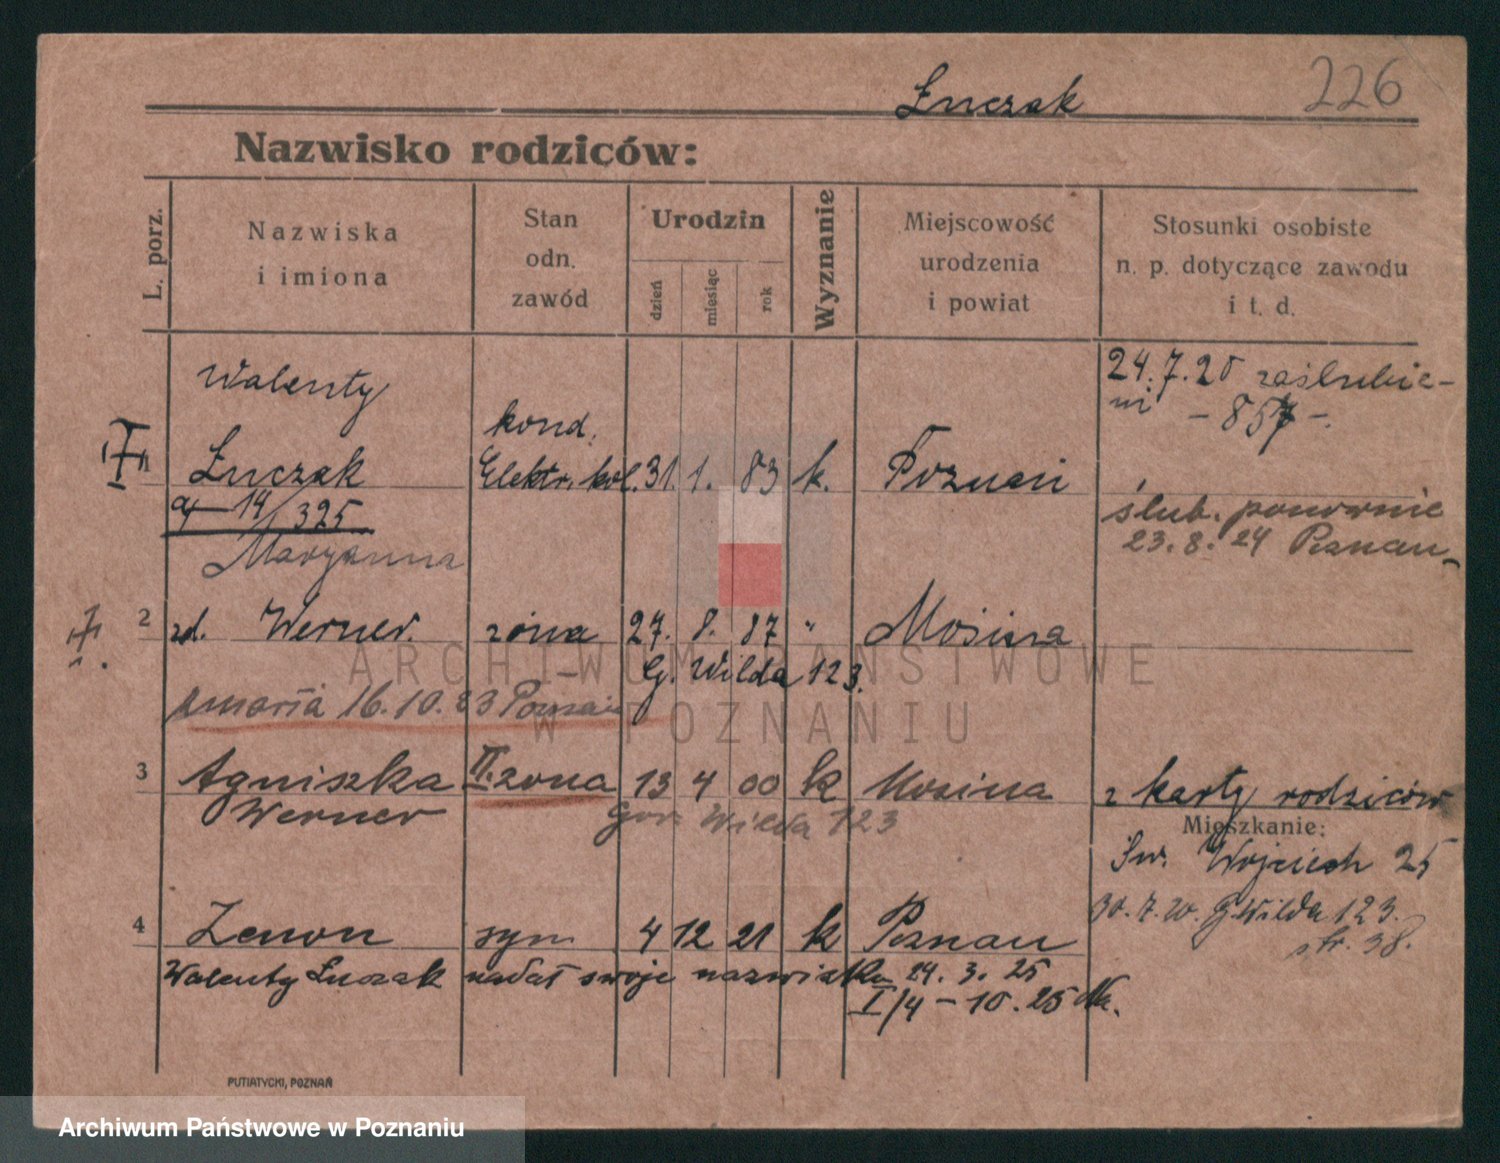 Łuczak 226
Nazwisko rodziców:
L. porz.
Nazwiska
i imiona
Stan
odn.
zawód
Urodzin
dzień
miesiąc
rok
Wyznanie
Miejscowość
urodzenia
i powiat
Stosunki osobiste
n. p. dotyczące zawodu
i t. d.
Walenty
24.7.20 zaślubie-
ni - 857 -
kond.
1 Łuczak Elektr. kol. 31. 1. 83 k. Poznań
14/325
ślub. ponownie
23.8.24 Poznań
Maryanna
2 zd. Werner. żona 27. 8. 87 " Mosina
G. Wilda 123.
zmarła 16.10.23 Poznań
3 Agniszka II. żona 13 4 00 k Mosina z karty rodziców
Werner
Gór Wilda 123
Mieszkanie:
Św. Wojciech 25
30.7.20. G. Wilda 123.
str. 38.
4 Zenon syn 4 12 21 k Poznań
Walenty Łuczak nadał swoje nazwisko 24.3.25
I/4 - 10.25
PUTIATYCKI, POZNAŃ
ARCHIWUM PAŃSTWOWE
W POZNANIU
Archiwum Państwowe w Poznaniu